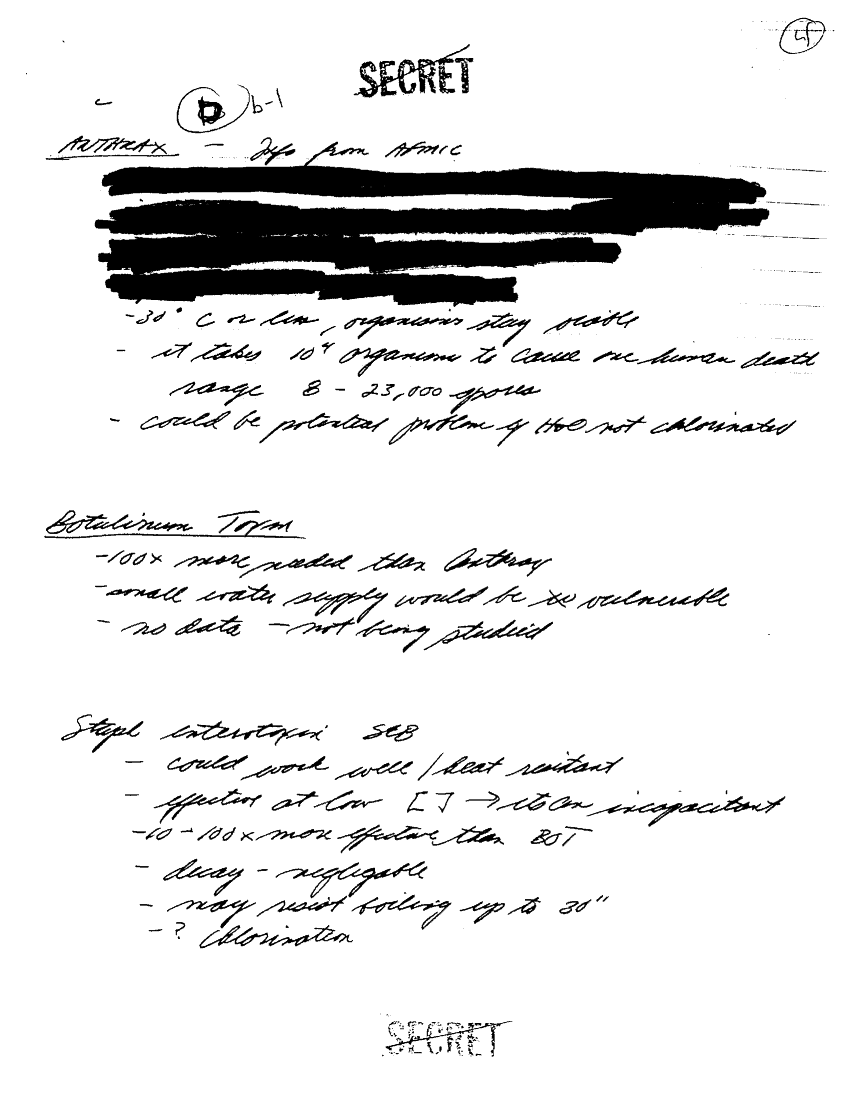 4
SECRET
b-1
ANTHRAX - Info from AFMIC
-30° C or less, organisms stay viable
- it takes 10⁴ organisms to cause one human death
range 8 - 23,000 spores
- could be potential problem if H2O not chlorinated
Botulinum Toxin
-100x more needed than Anthrax
- small water supply would be vulnerable
- no data - not being studied
Staph enterotoxin SEB
- could work well / heat resistant
- effective at low [ ] → its an incapacitant
-10-100x more effective than BOT
- decay - negligable
- may resist boiling up to 30"
- ? Chlorination
SECRET